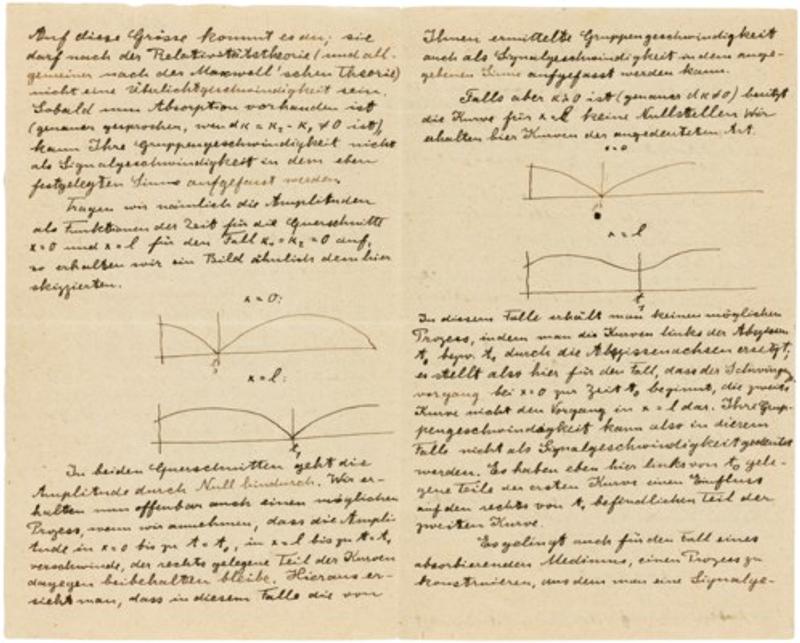 Auf diese Grösse kommt es an; sie
darf nach der Relativitätstheorie (und all-
gemeiner nach der Maxwell'schen Theorie)
nicht eine Überlichtgeschwindigkeit sein.
Sobald nun Absorption vorhanden ist
(genauer gesprochen, wenn dκ = κ₂ - κ₁ ≠ 0 ist),
kann Ihre Gruppengeschwindigkeit nicht
als Signalgeschwindigkeit in dem eben
festgelegten Sinne aufgefasst werden.
Tragen wir nämlich die Amplituden
als Funktionen der Zeit für die Querschnitte
x = 0 und x = l für den Fall κ₁ = κ₂ = 0 auf,
so erhalten wir ein Bild ähnlich dem hier
skizzierten.
x = 0:
x = l:
t₁
In beiden Querschnitten geht die
Amplitude durch Null hindurch. Wir er-
halten nun offenbar auch einen möglichen
Prozess, wenn wir annehmen, dass die Ampli-
tude in x = 0 bis zu t = t₀, in x = l bis zu t = t₁
verschwinde, der rechts gelegene Teil der Kurven
dagegen beibehalten bleibe. Hieraus er-
sieht man, dass in diesem Falle die von
Ihnen ermittelte Gruppengeschwindigkeit
auch als Signalgeschwindigkeit in dem ange-
gebenen Sinne aufgefasst werden kann.
Falls aber κ ≷ 0 ist (genauer dκ ≠ 0) besitzt
die Kurve für x = l keine Nullstellen. Wir
erhalten hier Kurven der angedeuteten Art.
x = 0
x = l
t₁
In diesem Falle erhält man keinen möglichen
Prozess, indem man die Kurven links der Abszissen
t₀ bezw. t₁ durch die Abszissenachsen ersetzt;
es stellt also hier für den Fall, dass der Schwingungs-
vorgang bei x = 0 zur Zeit t₀ beginnt, die zweite
Kurve nicht den Vorgang in x = l dar. Ihre Grup-
pengeschwindigkeit kann also in diesem
Falle nicht als Signalgeschwindigkeit gedeutet
werden. Es haben eben hier links von t₀ gele-
gene Teile der ersten Kurve einen Einfluss
auf den rechts von t₁ befindlichen Teil der
zweiten Kurve.
Es gelingt auch für den Fall eines
absorbierenden Mediums, einen Prozess zu
konstruieren, aus dem man eine Signalge-